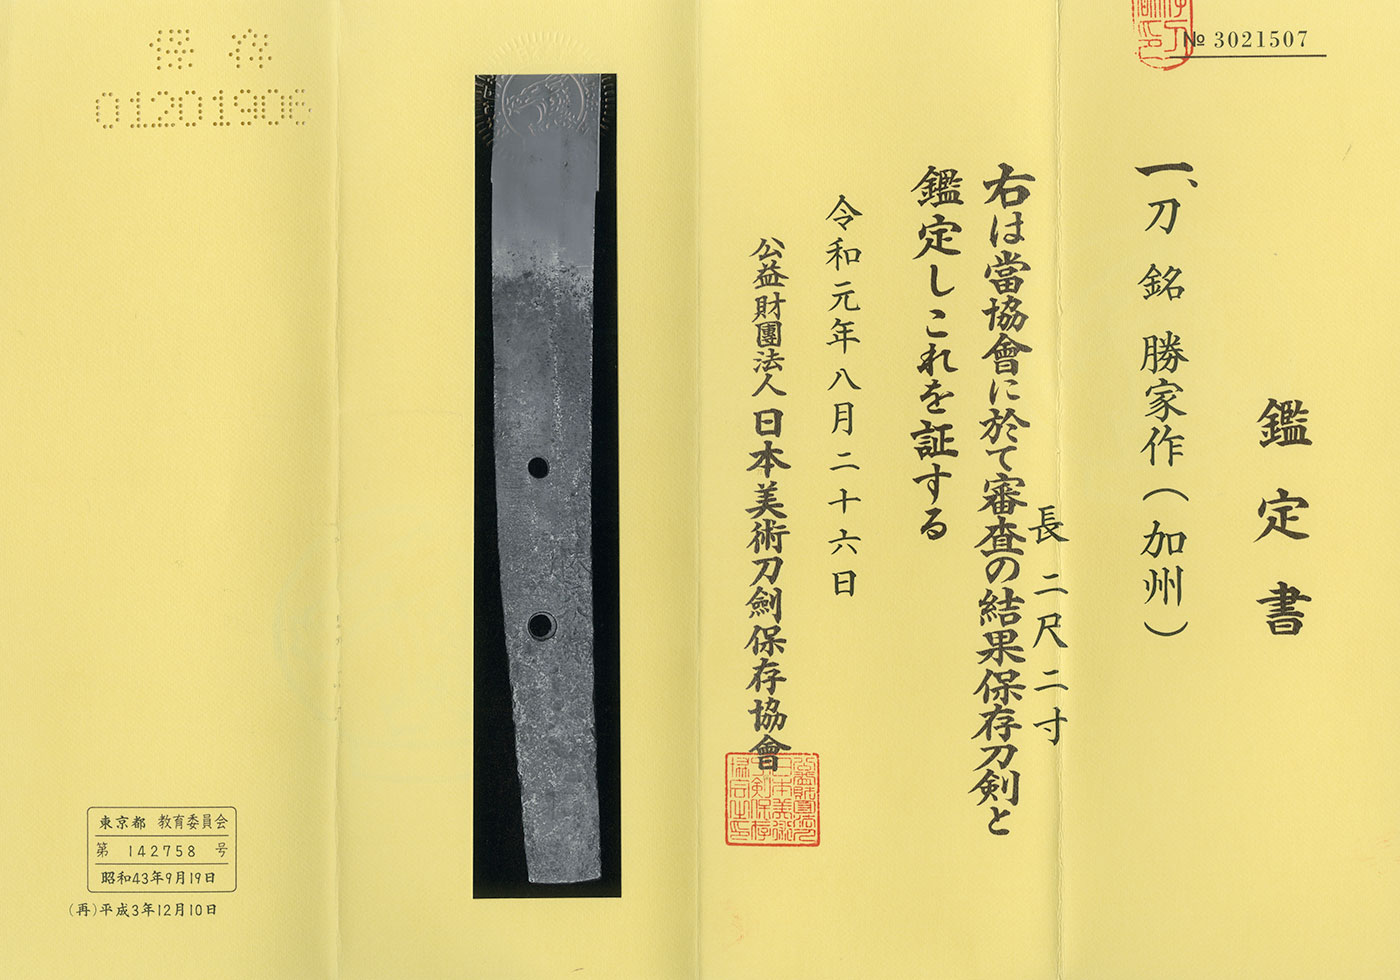 № 3021507
鑑定書
一、刀 銘 勝家作(加州)
長 二尺二寸
右は當協會に於て審査の結果保存刀剣と
鑑定しこれを証する
令和元年八月二十六日
公益財團法人 日本美術刀劍保存協會
保存
01201906
東京都 教育委員会
第 142758 号
昭和43年9月19日
(再)平成3年12月10日